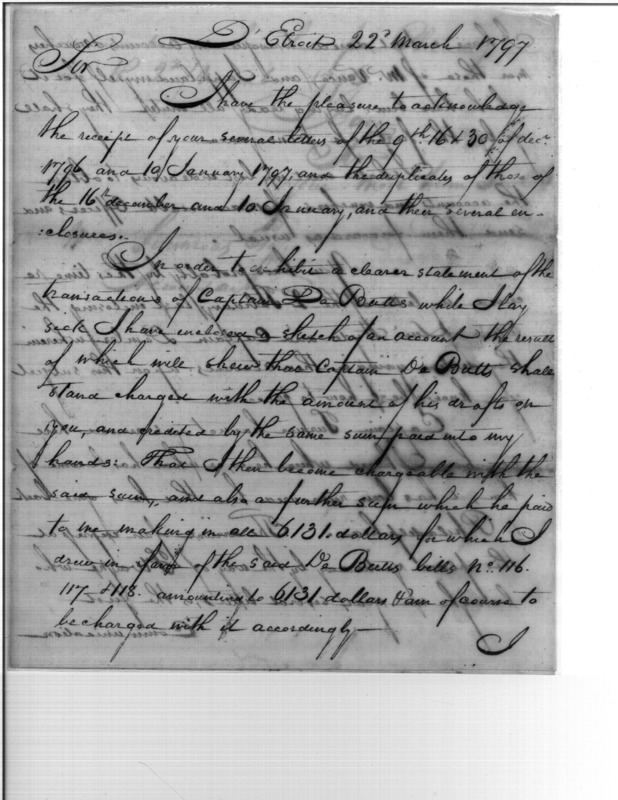 D'Etroit 22d March 1797
Sir
I have the pleasure to acknowledge
the receipt of your several letters of the 9th 16 & 30th of decr
1796 and 10 January 1797, and the duplicates of those of
the 16th december and 10 January, and their several en-
:closures.
In order to exhibit a clearer statement of the
transactions of Captain De Butts while I lay
sick I have enclosed a sketch of an account the result
of which will shew that Captain De Butts shall
stand charged with the amount of his drafts on
you, and credited by the same sum paid into my
hands: That I then become chargeable with the
said sum, and also a further sum which he paid
to me making in all 6131. dollars for which I
drew in favor of the said De Butts bills No. 116.
117 & 118. amounting to 6131 dollars & am of course to
be charged with it accordingly—
I